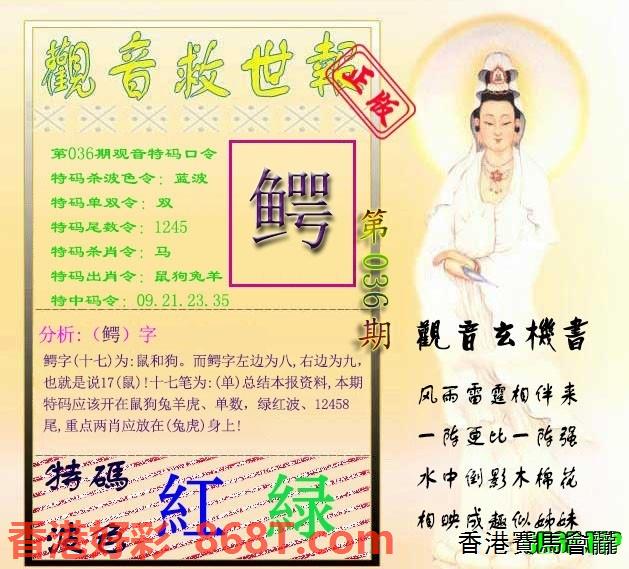 觀音救世報
正版
第036期观音特码口令
特码杀波色令：蓝波
特码单双令：双
特码尾数令：1245
特码杀肖令：马
特码出肖令：鼠狗兔羊
特中码令：09.21.23.35
鳄
第036期
分析:（鳄）字
鳄字(十七)为:鼠和狗。而鳄字左边为八,右边为九,
也就是说17(鼠)!十七笔为:(单)总结本报资料,本期
特码应该开在鼠狗兔羊虎、单数，绿红波、12458
尾,重点两肖应放在(兔虎)身上!
特碼
波色
紅 緑
觀音玄機書
风雨雷霆相伴来
一阵更比一阵强
水中倒影木棉花
相映成趣似姊妹
香港好彩 868T.com
香港賽馬會